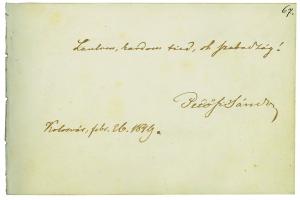 67.
Lantom, kardom tied, oh szabadság!
Petőfi Sándor
Kolosvár, febr. 26. 1849.